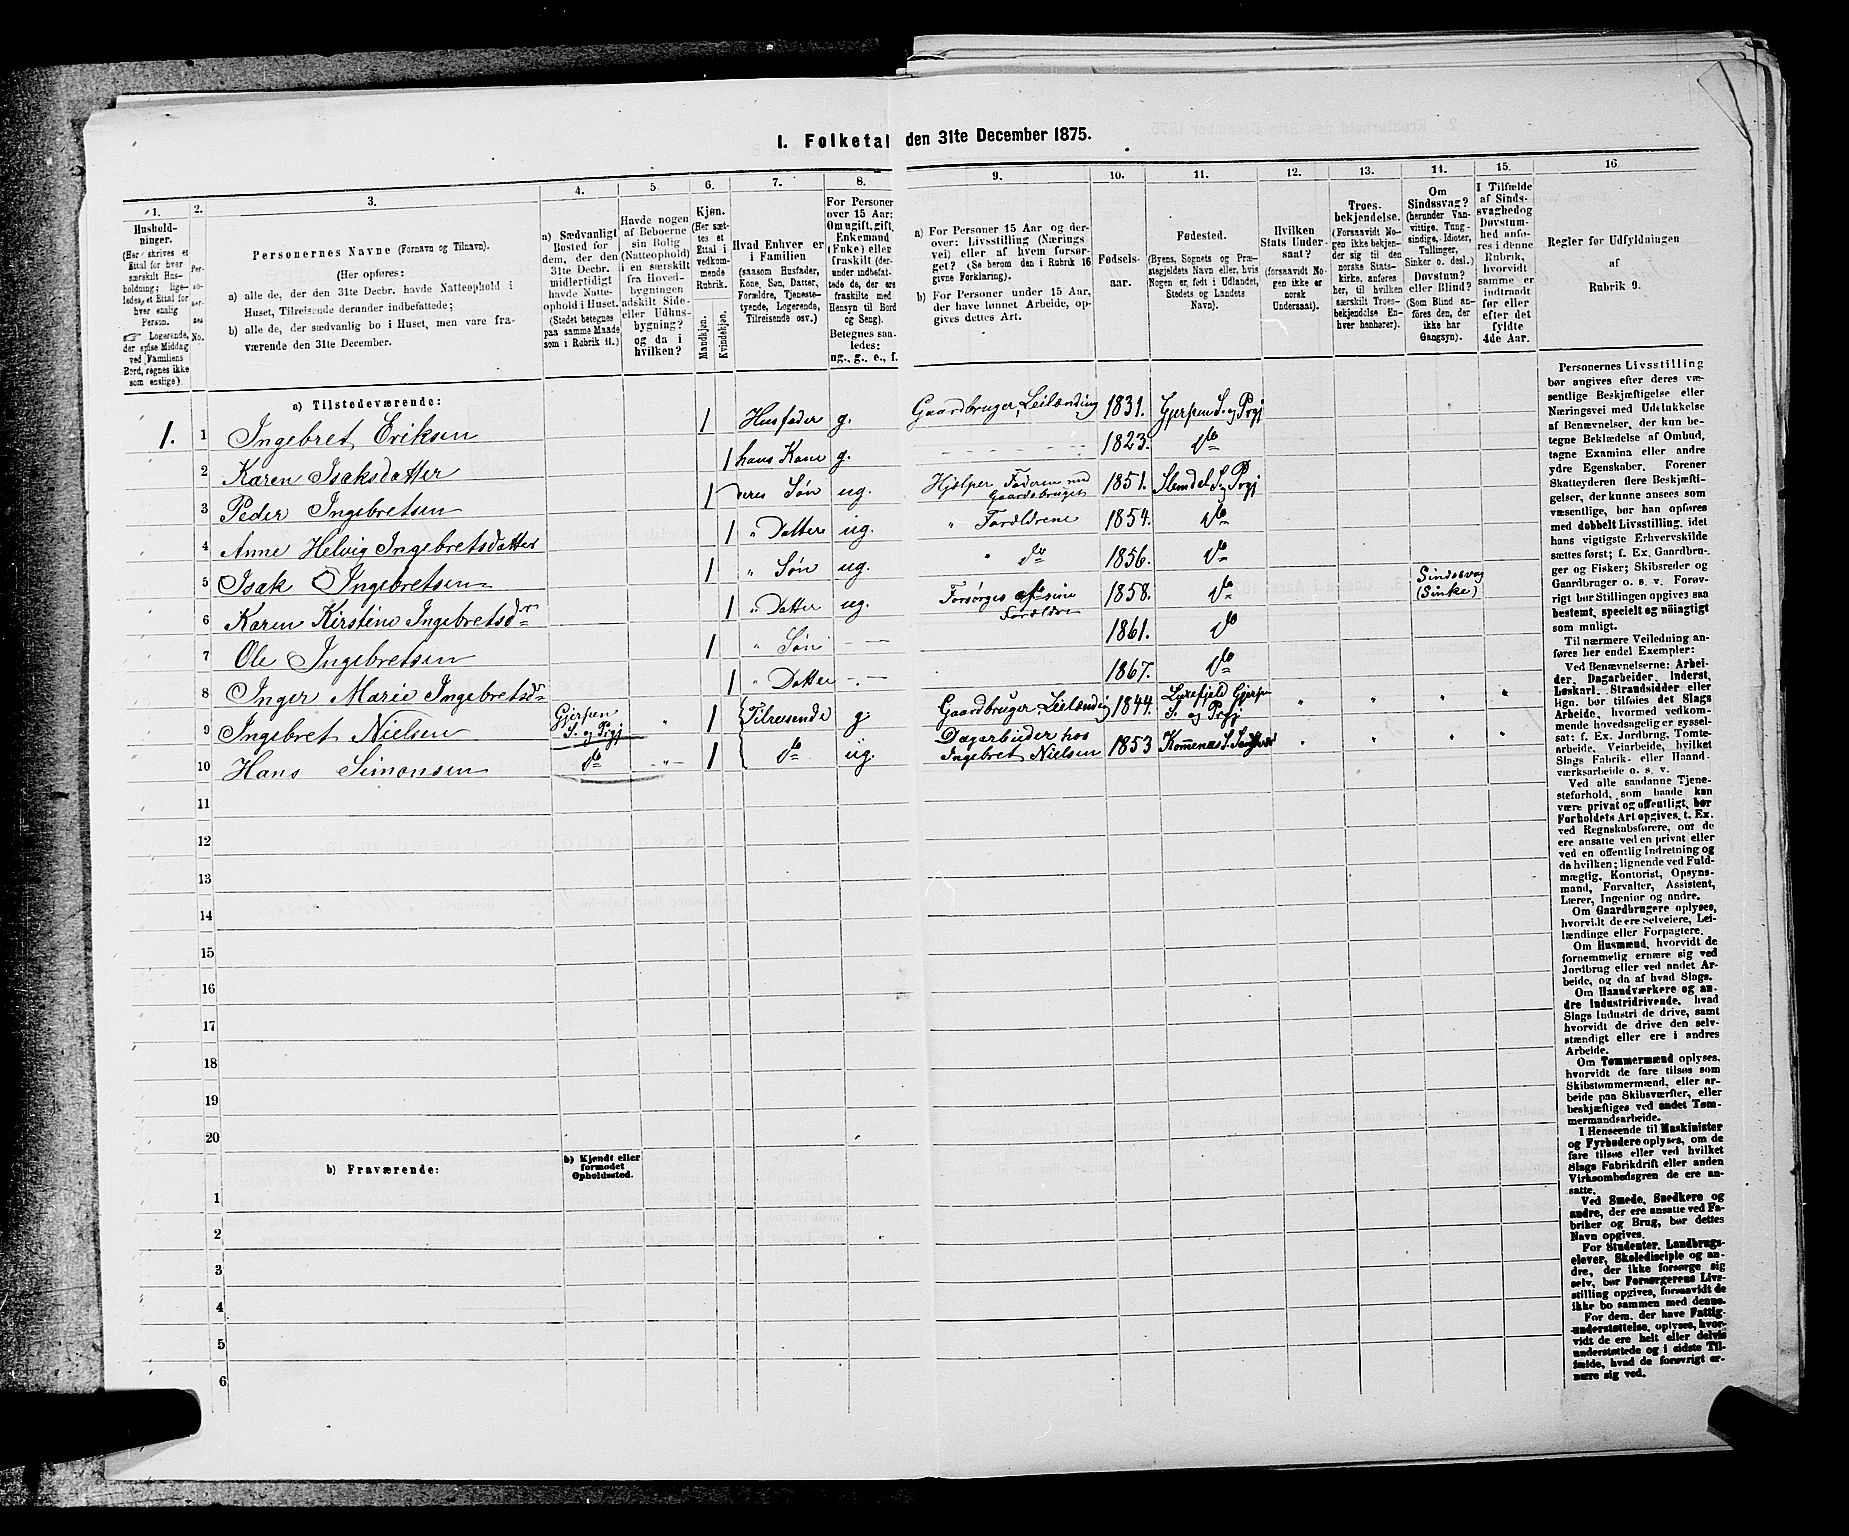 I. Folketal den 31te December 1875.
1. 2. 3. 4. 5. 6. 7. 8. 9. 10. 11. 12. 13. 14. 15. 16.
Hushold-
ninger.
(Her skrives et
Ettal for hver
særskilt Hus-
holdning; lige-
ledes et Ettal for
hver enslig
Person.
Logerende,
der spise Middag
ved Familiens
Bord, regnes ikke
som enslige).
Personernes Navne (Fornavn og Tilnavn).
(Her opføres:
a) alle de, der den 31te Decbr. havde Natteophold i
Huset, Tilreisende derunder indbefattede;
b) alle de, der sædvanlig bo i Huset, men vare fra-
værende den 31te December.
a) Sædvanligt
Bosted for
dem, der den
31te Decbr.
midlertidigt
havde Natte-
ophold i Huset.
(Stedet betegnes
paa samme Maade
som i Rubrik 11.)
Havde nogen
af Beboerne
sin Bolig
(Natteophold)
i en særskilt
fra Hoved-
bygningen
adskilt Side-
eller Udhus-
bygning?
og da i
hvilken?
Kjøn.
(Her sæt-
tes et
Ettal i
vedkom-
mende
Rubrik.
Mandkjøn.
Kvindekjøn.
Hvad Enhver er
i Familien
(saasom Husfader,
Kone, Søn, Datter,
Forældre, Tjeneste-
tyende, Logerende,
Tilreisende osv.)
For Personer
over 15 Aar:
Om ugift, gift,
Enkemand
(Enke) eller
fraskilt (der-
under indbefat-
tede de, der ere
fraskilte med
Hensyn til Bord
og Seng).
Betegnes saa-
ledes:
ug., g., e., f.
a) For Personer 15 Aar og der-
over: Livsstilling (Nærings-
vei) eller af hvem forsør-
get? (Se herom den i Rubrik 16
givne Forklaring).
b) For Personer under 15 Aar,
der have lønnet Arbeide, op-
gives dettes Art.
Fødsels-
aar.
Fødested.
(Byens, Sognets og Præ-
stegjeldets Navn eller, hvis
Nogen er født i Udlandet,
Stedets og Landets
Navn).
Hvilken
Stats Under-
saat?
(forsaavidt No-
gen ikke er
norsk
Undersaat).
Troes-
bekjendelse.
(Forsaavidt No-
gen ikke bekjen-
der sig til den
norske Stats-
kirke, anføres
her, til hvilken
særskilt Troes-
bekjendelse En-
hver henhører).
Om
Sindssvag?
(herunder Van-
vittige, Tung-
sindige, Idioter,
Tullinger,
Sinker o. desl.)
Døvstum?
eller Blind?
(Som Blind an-
føres den, der
ikke har
Gangsyn).
I Tilfælde
af Sinds-
svaghed og
Døvstum-
hed anfø-
res i denne
Rubrik,
hvorvidt
samme er
indtraadt
før eller
efter det
fyldte
4de Aar.
Regler for Udfyldningen
af
Rubrik 9.
a) Tilstedeværende:
1. 1 Ingebret Eriksen 1 Husfader g. Gaardbruger, Leilænding 1831. Gjerpen S. og Prgj
2 Karen Isaksdatter 1 hans Kone g. 1823. do
3 Peder Ingebretsen 1 deres Søn ug. Hjælper Faderen med Gaardsbruget 1851. Slemdal S. og Prgj
4 Anne Helvig Ingebretsdatter 1 " Datter ug. " Forældrene 1854. do
5 Isak Ingebretsen 1 " Søn ug. " do 1856. do
6 Karen Kirstine Ingebretsdr 1 " Datter ug. Forsørges af sine Forældre 1858. do Sindssvag (Sinke)
7 Ole Ingebretsen 1 " Søn — 1861. do
8 Inger Marie Ingebretsdr 1 " Datter — 1867. do
9 Ingebret Nielsen Gjerpen S. og Prgj " 1 Tilreisende g. Gaardbruger, Leilænding 1844. Gjerpen S. og Prgj " " " "
10 Hans Simonsen do " 1 do ug. Dagarbeider hos Ingebret Nielsen 1853 " " " "
11
12
13
14
15
16
17
18
19
20
b) Fraværende:
b) Kjendt eller
formodet
Opholdssted.
1
2
3
4
5
6
Personernes Livsstilling
bør angives efter deres væ-
sentlige Beskjæftigelse eller
Næringsvei med Udelukkelse
af Benævnelser, der kun be-
tegne Beklædelse af Ombud,
tagne Examina eller andre
ydre Egenskaber. Forener
Skatteyderen flere Beskjæfti-
gelser, der kunne ansees som
væsentlige, bør han opføres
med dobbelt Livsstilling, idet
hans vigtigste Erhvervskilde
sættes først; f. Ex. Gaardbru-
ger og Fisker; Skibsreder og
Gaardbruger o. s. v. Forøv-
rigt bør Stillingen opgives saa
bestemt, specielt og nøiagtigt
som muligt.
Til nærmere Veiledning an-
føres her endel Exempler:
Ved Benævnelserne: Arbei-
der, Dagarbeider, Inderst,
Løskarl, Strandsidder eller
lign. bør tilføies det Slags
Arbeide, hvormed vedkom-
mende hovedsagelig er syssel-
sat; f. Ex. Jordbrug, Tomte-
arbeide, Veiarbeide, hvilket
Slags Fabrik- eller Haand-
værksarbeide o. s. v.
Ved alle saadanne Tjene-
steforhold, som baade kan
være privat og offentligt, bør
Forholdets Art opgives, t. Ex.
ved Regnskabsførere, om de
ere ansatte ved en privat eller
ved en offentlig Indretning og
da hvilken; lignende ved Fuld-
mægtig, Kontorist, Opsyns-
mand, Forvalter, Assistent,
Lærer, Ingeniør og andre.
Om Gaardbrugere oplyses,
hvorvidt de ere Selveiere, Lei-
lændinge eller Forpagtere.
Om Husmænd, hvorvidt de
fornemmelig ernære sig ved
Jordbrug eller ved andet Ar-
beide, og da af hvad Slags.
Om Haandværkere og an-
dre Industridrivende, hvad
Slags Industri de drive, samt
hvorvidt de drive den selv-
stændigt eller ere i andres
Arbeide.
Om Tømmermænd oplyses,
hvorvidt de fare tilsøs som
Skibstømmermænd, eller ar-
beide paa Skibsværfter, eller
beskjæftiges ved andet Tøm-
mermandsarbeide.
I Henseende til Maskinister
og Fyrbødere oplyses, om de
fare tilsøs eller ved hvilket
Slags Fabrikdrift eller anden
Virksomhedsgren de ere an-
satte.
Ved Smede, Snedkere og
andre, der ere ansatte ved Fa-
briker og Brug, bør dettes
Navn opgives.
For Studenter, Landbrugs-
elever, Skoledisciple og an-
dre, der ikke forsørge sig
selv, bør Forsørgerens Livs-
stilling opgives, forsaavidt de
ikke bo sammen med denne.
For dem, der have Fattig-
understøttelse, oplyses, hvor-
vidt de ere helt eller delvis
understøttede og i sidste Til-
fælde, hvad de forøvrigt er-
nære sig ved.